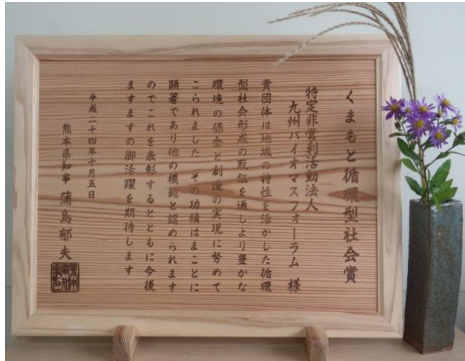 くまもと循環型社会賞
特定非営利活動法人
九州バイオマスフォーラム 様
貴団体は地域の特性を活かした循環
型社会形成の取組を通しより豊かな
環境の保全と創造の実現に努めて
こられました その功績はまことに
顕著であり他の模範と認められます
のでこれを表彰するとともに今後
ますますの御活躍を期待します
平成二十四年十月五日
熊本県知事 蒲島郁夫